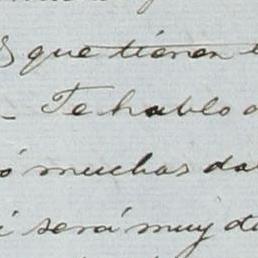 que tienen
- Te hablo
ó muchas
será muy